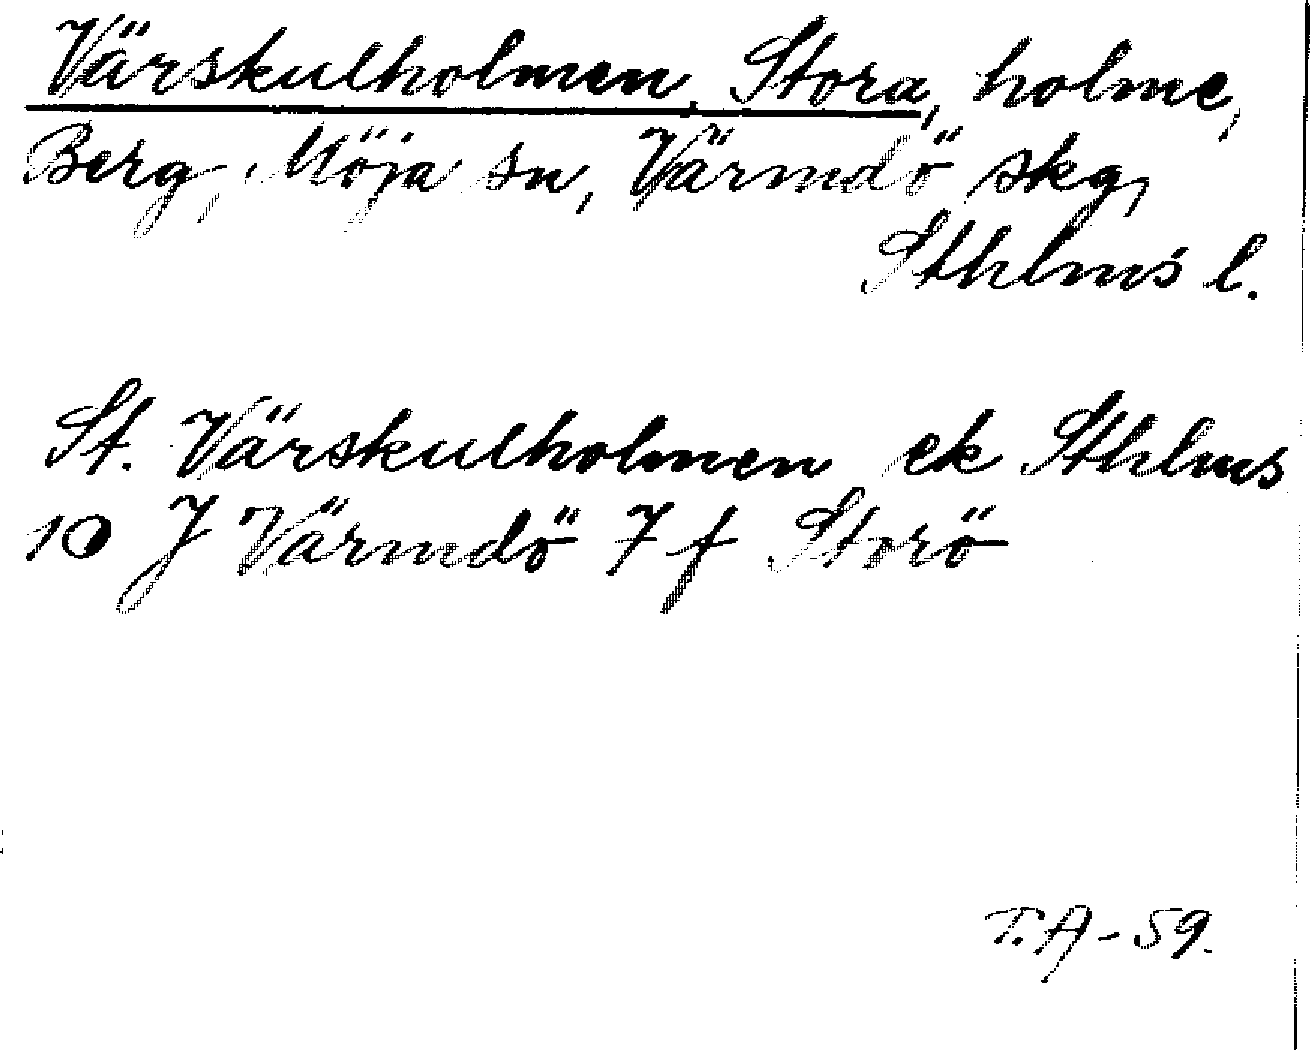 Värskulholmen, Stora, holme,
Berg, Möja sn, Värmdö skg,
Sthlms l.
St. Värskulholmen ek Sthlms
10 J Värmdö 7 f Storö
T.A-59.